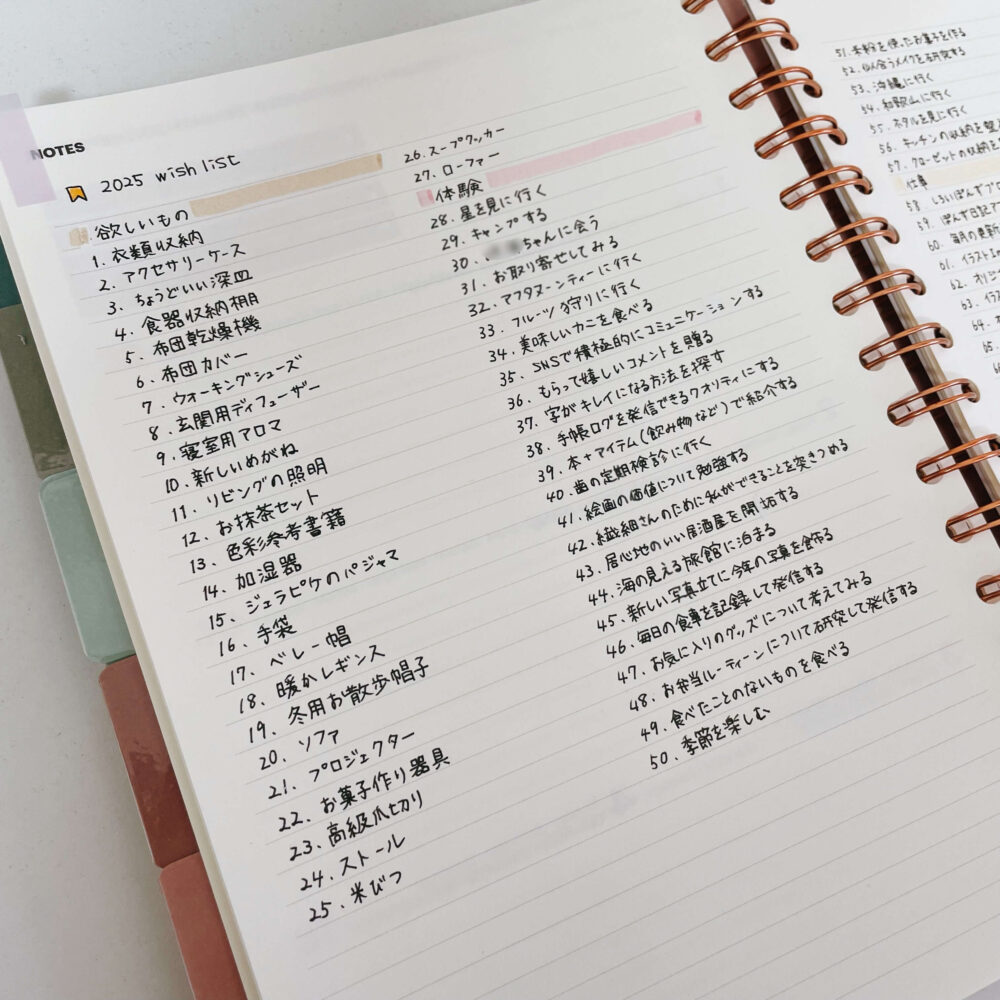 NOTES
2025 wish list
欲しいもの
1. 衣類収納
2. アクセサリーケース
3. ちょうどいい深皿
4. 食器収納棚
5. 布団乾燥機
6. 布団カバー
7. ウォーキングシューズ
8. 玄関用ディフューザー
9. 寝室用アロマ
10. 新しいめがね
11. リビングの照明
12. お抹茶セット
13. 色彩参考書籍
14. 加湿器
15. ジェラピケのパジャマ
16. 手袋
17. ベレー帽
18. 暖かレギンス
19. 冬用お散歩帽子
20. ソファ
21. プロジェクター
22. お菓子作り器具
23. 高級爪切り
24. ストール
25. 米びつ
26. スープクッカー
27. ローファー
体験
28. 星を見に行く
29. キャンプする
30. ちゃんに会う
31. お取り寄せしてみる
32. アフタヌーンティーに行く
33. フルーツ狩りに行く
34. 美味しいカニを食べる
35. SNSで積極的にコミュニケーションする
36. もらって嬉しいコメントを贈る
37. 字がキレイになる方法を探す
38. 手帳ログを発信できるクオリティにする
39. 本+アイテム(飲み物など)で紹介する
40. 歯の定期検診に行く
41. 絵画の価値について勉強する
42. 繊細さんのために私ができることを突きつめる
43. 居心地のいい居酒屋を開拓する
44. 海の見える旅館に泊まる
45. 新しい写真立てに今年の写真を飾る
46. 毎日の食事を記録して発信する
47. お気に入りのグッズについて考えてみる
48. お弁当ルーティーンについて研究して発信する
49. 食べたことのないものを食べる
50. 季節を楽しむ
51. 米粉を使ったお菓子を作る
52. 似合うメイクを研究する
53. 沖縄に行く
54. 和歌山に行く
55. ホタルを見に行く
56. キッチンの収納を整
57. クローゼットの収納を
仕事
58. しろいぽんずブ
59. ぽんず日記ア
60. 毎月の更新
61. イラスト
62. オリジ
63. イラ
64.
65.
66